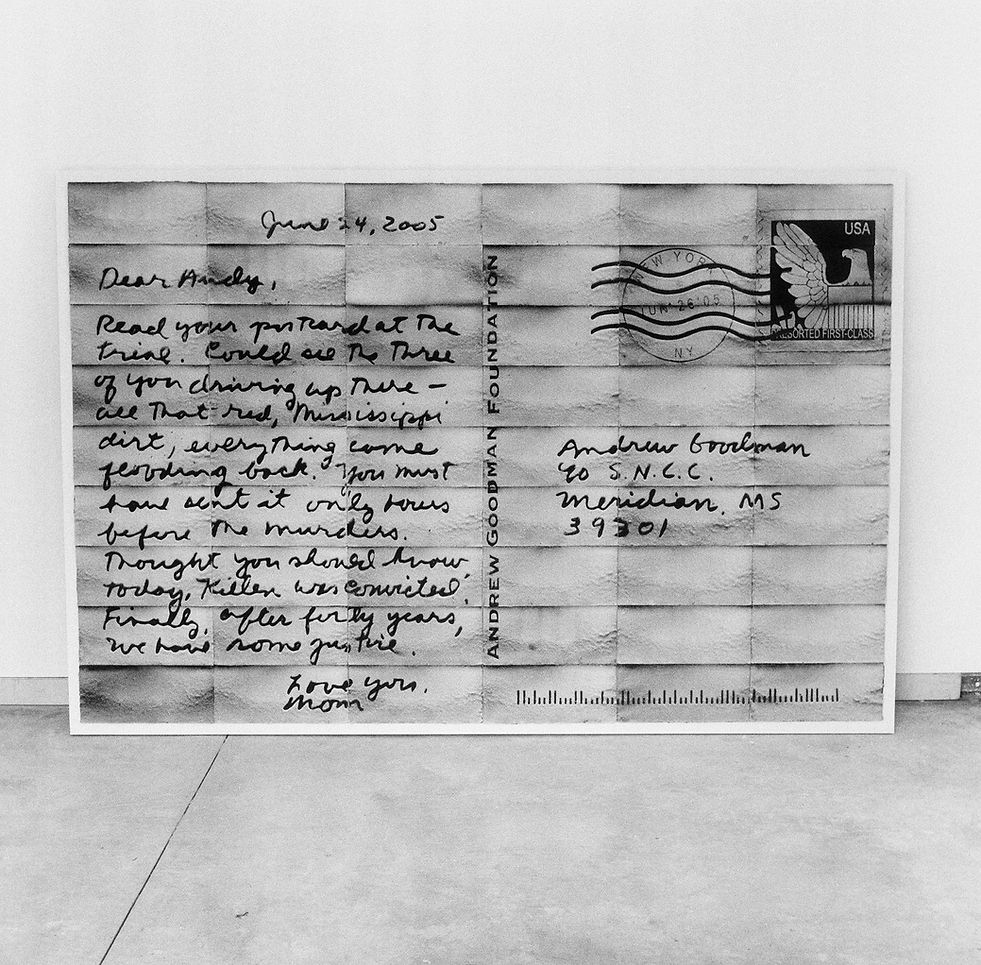 June 24, 2005
Dear Andy,
Read your postcard at the
trial. Could see the three
of you driving up there –
all that red, Mississippi
dirt, everything came
flooding back. You must
have sent it only hours
before the murders.
Thought you should know
today, Killen was convicted.
Finally, after forty years,
we have some justice.
Love you,
Mom
ANDREW GOODMAN FOUNDATION
NEW YORK
JUN 26 '05
NY
USA
PRESORTED FIRST-CLASS
Andrew Goodman
c/o S.N.C.C.
Meridian, MS
39301